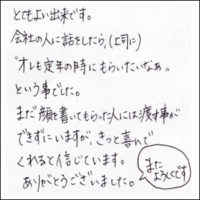 とてもよい出来です。
会社の人に話をしたら、(上司に)
"オレも定年の時にもらいたいなぁ"
という事でした。
まだ顔を書いてもらった人には渡す事が
できずにいますが、きっと喜んで
くれると信じています。
ありがとうございました。
また
よろしくです